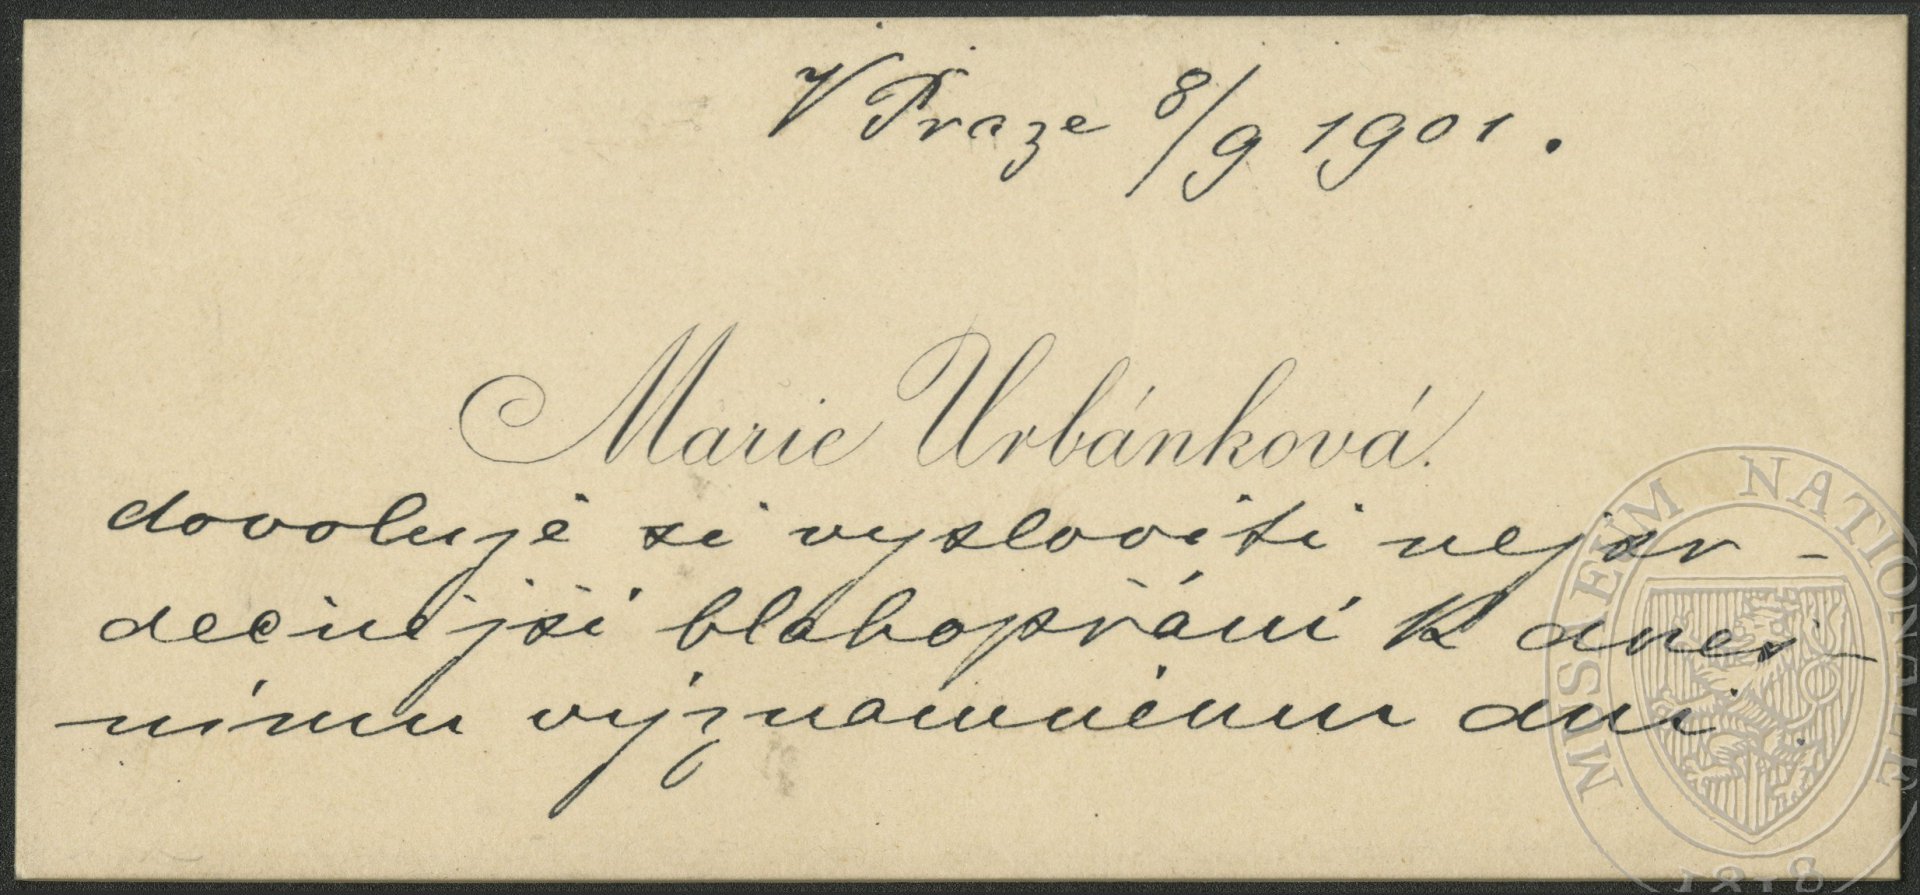 V Praze 8/9 1901.
Marie Urbánková.
dovoluje si vysloviti nejsr-
dečnější blahopřání k dneš-
nímu významnému dni.
MUSEUM NATIONALE
1818